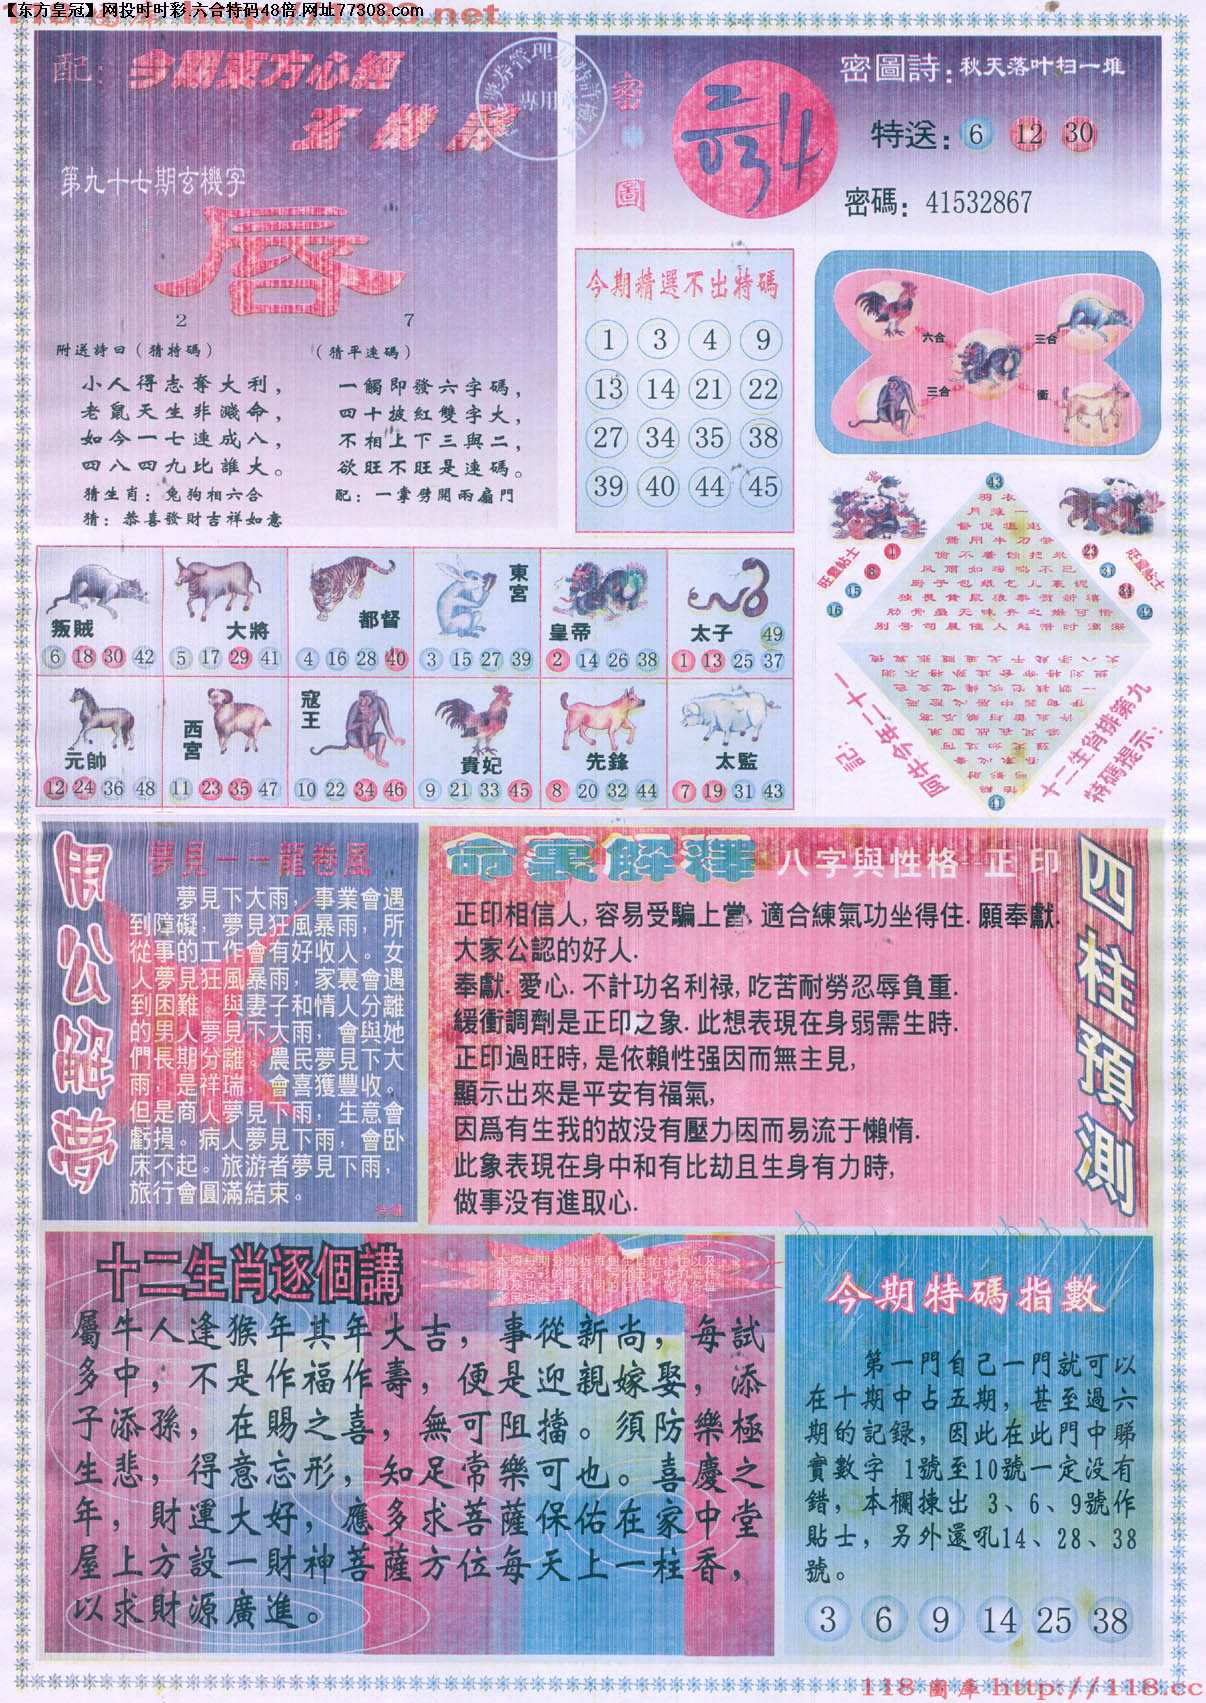 【东方皇冠】网投时时彩 六合特码48倍 网址77308.com
配:今期東方心經
玄機字
第九十七期玄機字
唇
2
7
附送詩曰(猜特碼)
(猜平連碼)
小人得志奪大利,
老鼠天生非濺命,
如今一七連成八,
四八四九比誰大。
猜生肖:兔狗相六合
猜:恭喜發財吉祥如意
一觸即發六字碼,
四十披紅雙字大,
不相上下三與二,
欲旺不旺是連碼。
配:一掌劈開兩扇門
密
圖
密圖詩:秋天落叶扫一堆
特送:6 12 30
密碼:41532867
今期精選不出特碼
1 3 4 9
13 14 21 22
27 34 35 38
39 40 44 45
六合
三合
三合
衝
43
旺星帖士
1
8
15
16
23
31
34
42
旺星帖士
41
記:
阿牛今年二十一
十二生肖排第九
特碼提示:
叛賊
6 18 30 42
大將
5 17 29 41
都督
4 16 28 40
東宮
3 15 27 39
皇帝
2 14 26 38
太子
49
1 13 25 37
元帥
12 24 36 48
西宮
11 23 35 47
寇王
10 22 34 46
貴妃
9 21 33 45
先鋒
8 20 32 44
太監
7 19 31 43
周公解夢
夢見一一龍卷風
夢見下大雨,事業會遇
到障礙,夢見狂風暴雨,所
從事的工作會有好收入。女
人夢見狂風暴雨,家裏會遇
到困難。與妻子和情人分離
的男人夢見下大雨,會與她
們長期分離。農民夢見下大
雨,是祥瑞,會喜獲豐收。
但是商人夢見下雨,生意會
虧損。病人夢見下雨,會卧
床不起。旅游者夢見下雨,
旅行會圓滿結束。
命裏解釋
八字與性格 正印
正印相信人,容易受騙上當.適合練氣功坐得住.願奉獻.
大家公認的好人.
奉獻.愛心.不計功名利禄,吃苦耐勞忍辱負重.
緩衝調劑是正印之象.此想表現在身弱需生時.
正印過旺時,是依賴性强因而無主見,
顯示出來是平安有福氣,
因爲有生我的故没有壓力因而易流于懶惰.
此象表現在身中和有比劫且生身有力時,
做事没有進取心.
四柱預測
十二生肖逐個講
屬牛人逢猴年其年大吉,事從新尚,每試
多中,不是作福作壽,便是迎親嫁娶,添
子添孫,在賜之喜,無可阻擋。須防樂極
生悲,得意忘形,知足常樂可也。喜慶之
年,財運大好,應多求菩薩保佑在家中堂
屋上方設一財神菩薩方位每天上一柱香,
以求財源廣進。
今期特碼指數
第一門自己一門就可以
在十期中占五期,甚至過六
期的記録,因此在此門中睇
實數字 1號至10號一定没有
錯,本欄揀出 3、6、9號作
貼士,另外還吼14、28、38
號。
3 6 9 14 25 38
118 圖庫 http://118.cc